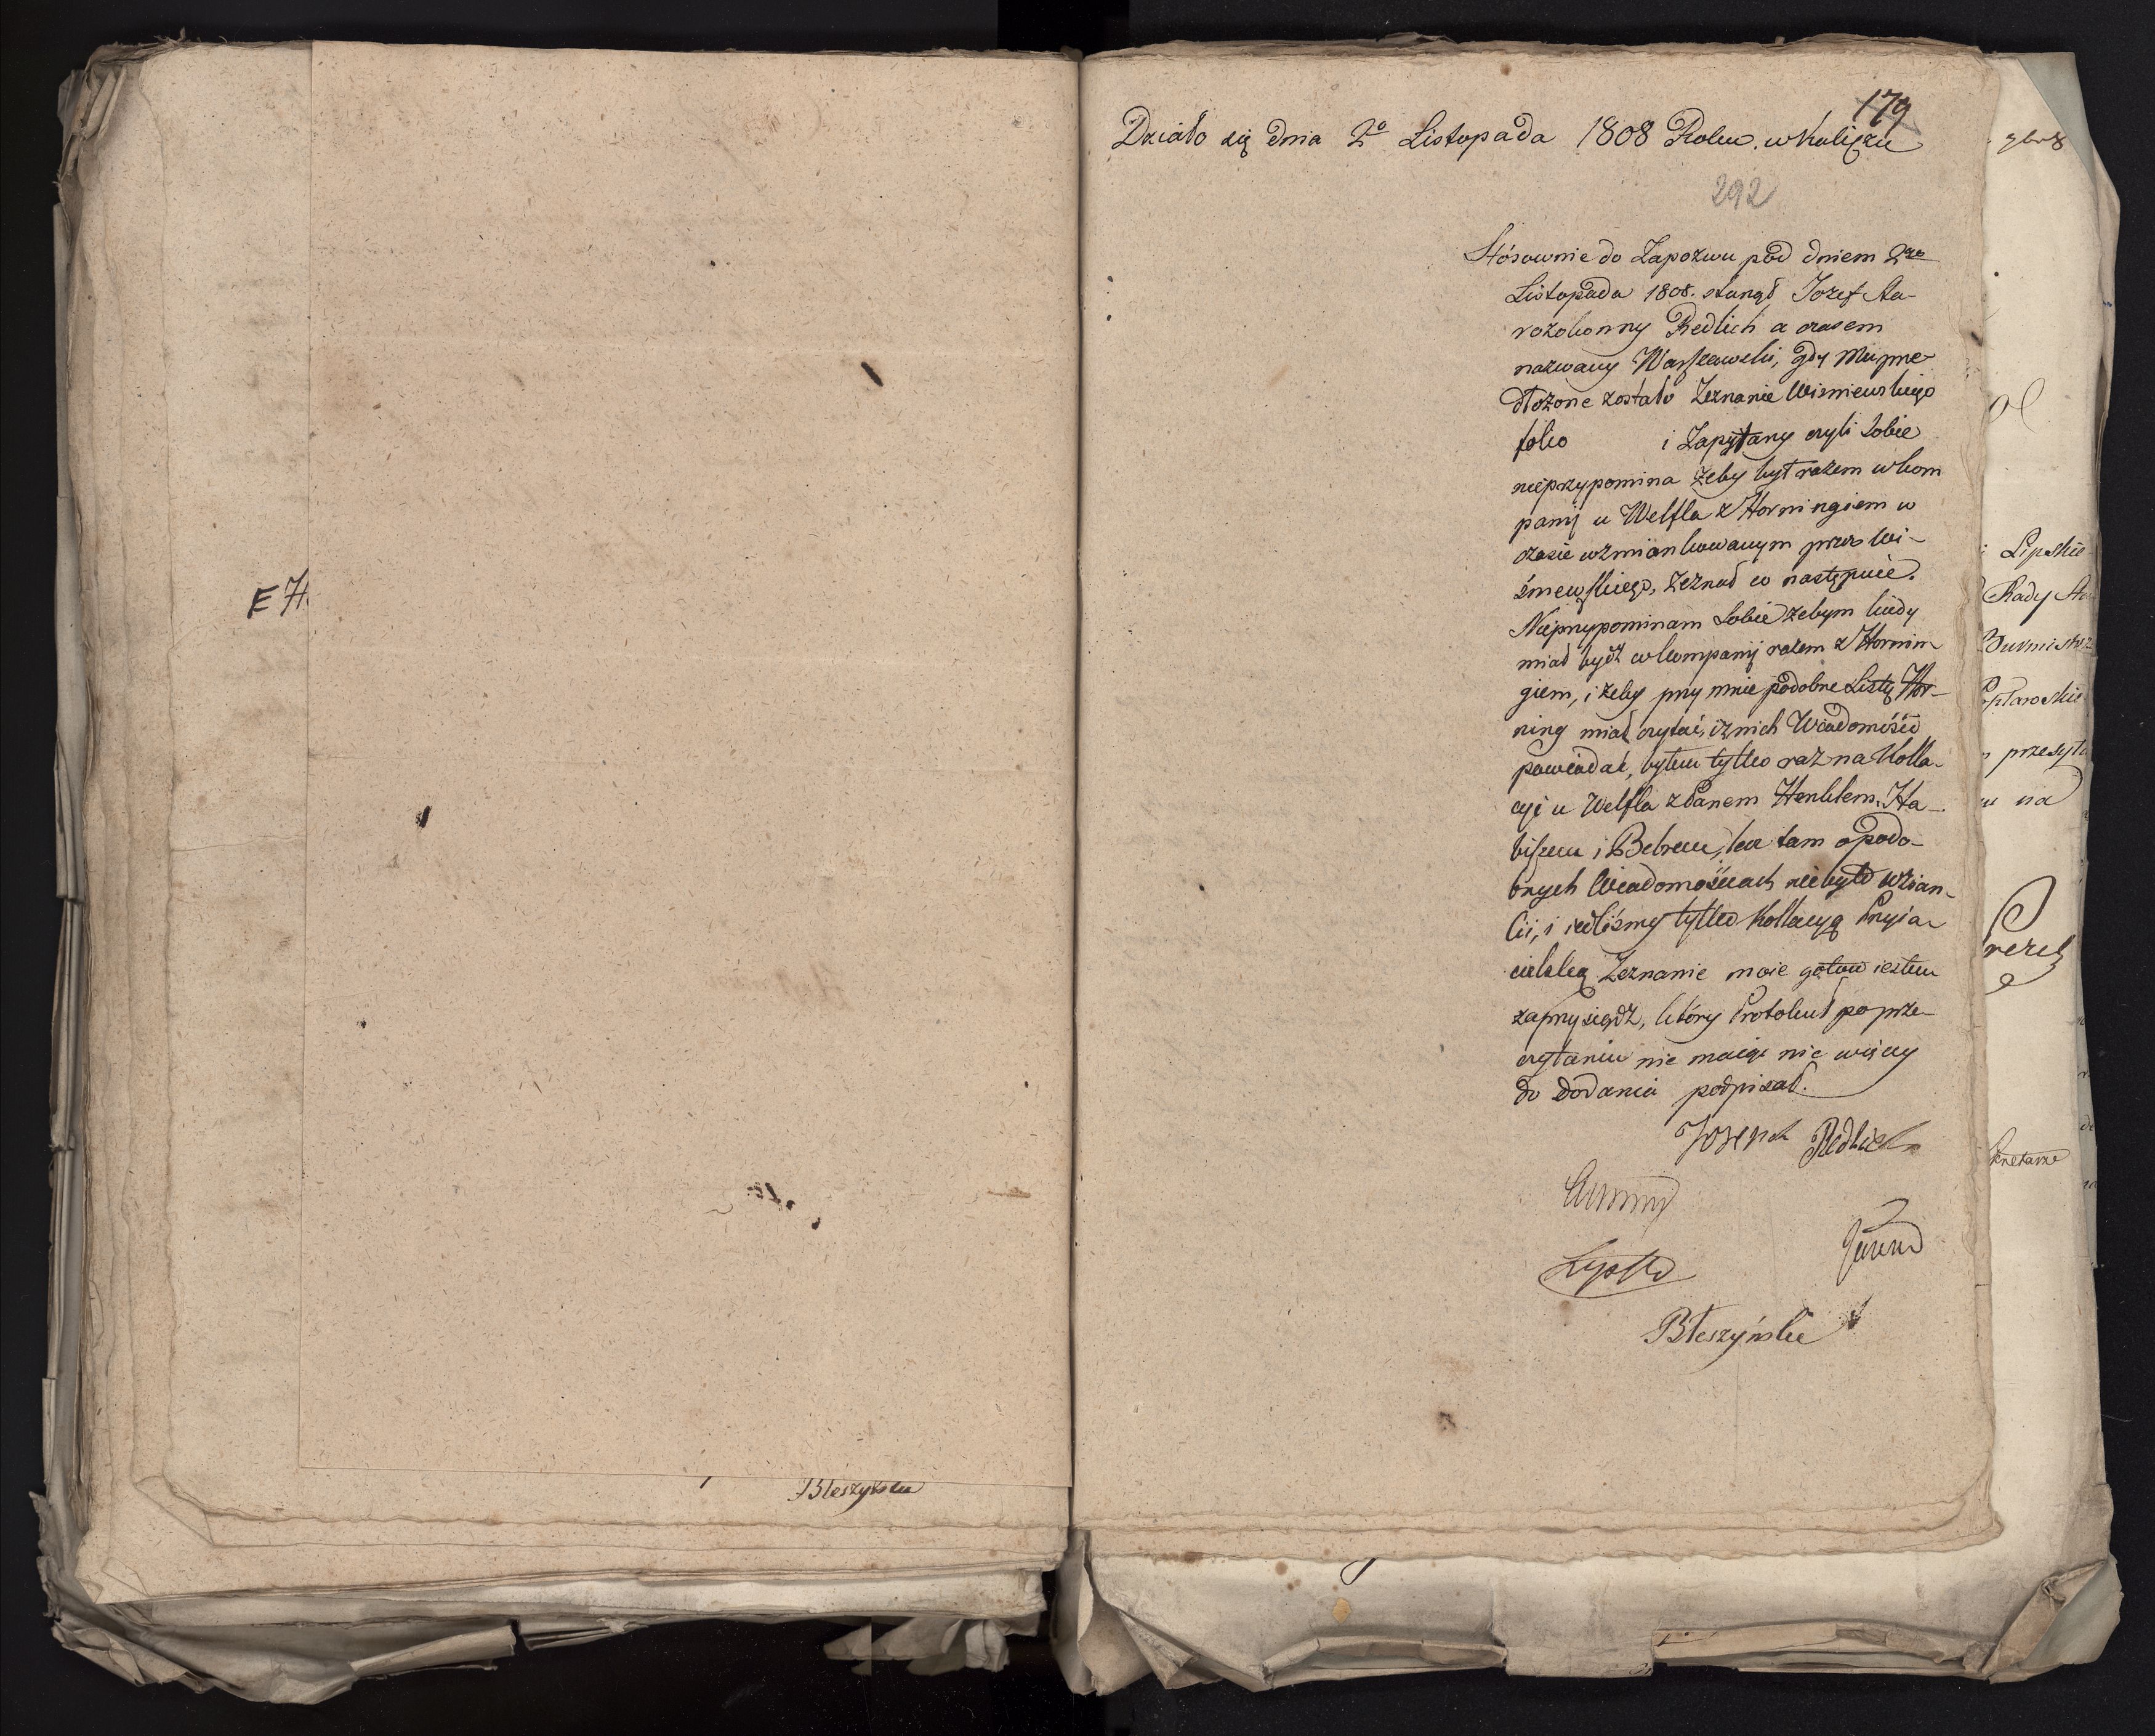 E H
Bleszyński
179
Działo się dnia 2º Listopada 1808 Roku. w Kaliszu
292
Stósownie do Zapozwu pod dniem 2go
Listopada 1808. stanął Jozef Sta-
rozakonny Redlich a czasem
nazwany Warszawski, gdy Mu prze-
dłożone zostało Zeznanie Wisniewskiego
folio i Zapytany czyli Sobie
nieprzypomina żeby był razem w kom
panij u Welfla z Horningiem w
czasie wzmiankowanym przez Wi-
śniewskiego, zeznał co następuie.
Nieprzypominam Sobie żebym kiedy
miał bydź w kompanij razem z Hornin
giem, i żeby przy mnie podobne Listy Hor-
ning miał czytać, i z nich Wiadomości
powiadać, byłem tylko raz na Kolla-
cyi u Welfla z Panem Henklem, Ha-
biszem i Bebrem, lecz tam o podo-
bnych Wiadomościach nie było wzian-
ki, i iedliśmy tylko Kollacyą Przyia-
cielską Zeznanie moie gotow iestem
zaprzysiądz, który Protokuł po prze-
czytaniu nie maiąc nic więcy
do dodania podpisał.
Joseph Redlich
Bleszyński
Lipskie
Rady
Burmistrz
przesyła
na